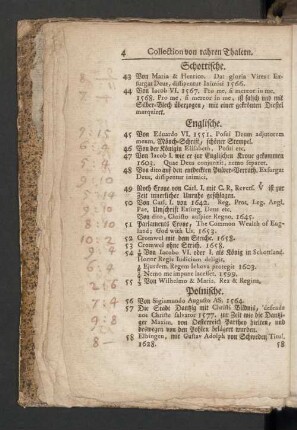 4 Collection von rahren Thalern.
Schottische.
43 Von Maria & Henrico. Dat gloria Vires: Exurgat Deus, dissipentur Inimici 1566.
44 Von Jacob VI. 1567. Pro me, si mereor in me.
1568. Pro me, si mereor in me, ist falsch und mit
Silber-Blech überzogen, mit einer gekrönten Distel
marquiret.
Englische.
45 Von Eduardo VI. 1551. Posui Deum adjutorem
meum.
46 Von der Königin Elisabeth, Posui etc.
47 Von Jacob I. wie er zur Englischen Krone gekommen
1603. Quae Deus conjunxit, nemo separet.
48 Von dito auf den entdeckten Pulver-Verrath. Exurgat
Deus, dissipentur inimici.
49 Noch Crone von Carl. I. mit C. R. ist zur
Zeit innerlicher Unruhe geschlagen.
50 Von Carl. I. von 1642. Rel. Prot, Leg. Angl.
Par, Umschrift Exurg. Deus etc.
Von dito, Christo auspice Regno. 1645.
51 Parlements Crone, The Common Wealth of England;
God with Us. 1653.
52 Cromwel mit dem Striche. 1658.
53 Cromwel ohne Strich. 1658.
54 Jacobo VI. oder I. als König in Schottland.
Honor Regis Judicium diligit.
Ejusdem. Regem Jehova protegit 1603.
Nemo me impune lacesset. 1599.
55 Von Wilhelmo & Maria. Rex & Regina.
Polnische.
56 Von Sigismundo Augusto AS. 1564.
57 Die Stadt Dantzig mit Christi Bildniß, defende
nos Christe salvator 1577. zur Zeit wie die Dantziger
Maxim. von Oesterreich Parthey hielten, und
deswegen von den Pohlen belagert wurden.
58 Elbingen, mit Gustav Adolph von Schweden Titul.
1628. 58